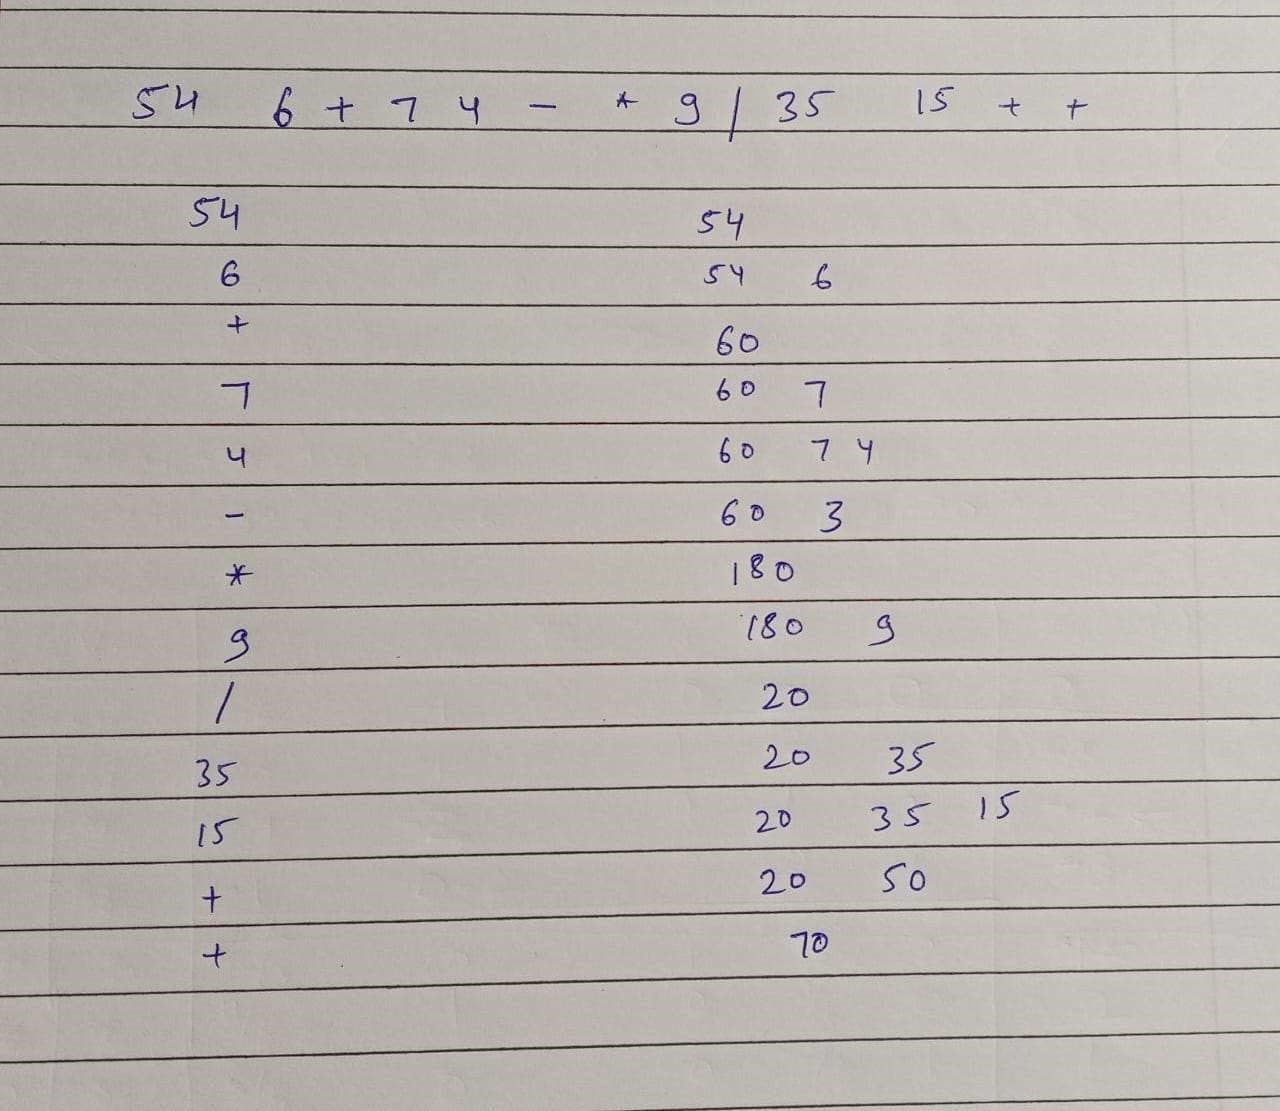 54 6 + 7 4 - * 9 / 35 15 + +
54 54
6 54 6
+ 60
7 60 7
4 60 7 4
- 60 3
* 180
9 180 9
/ 20
35 20 35
15 20 35 15
+ 20 50
+ 70